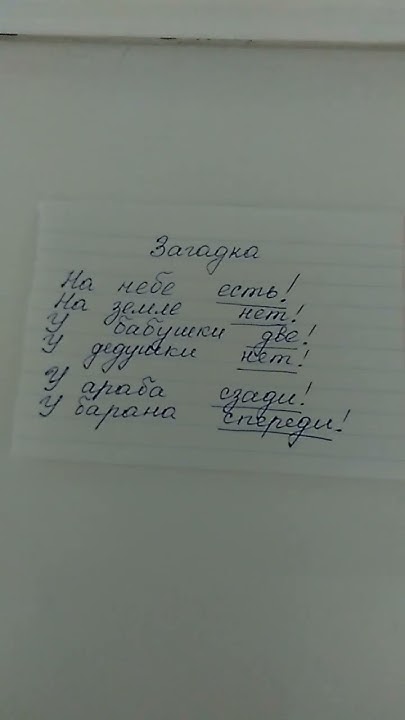 Загадка
На небе есть!
На земле нет!
У бабушки две!
У дедушки нет!
У араба сзади!
У барана спереди!